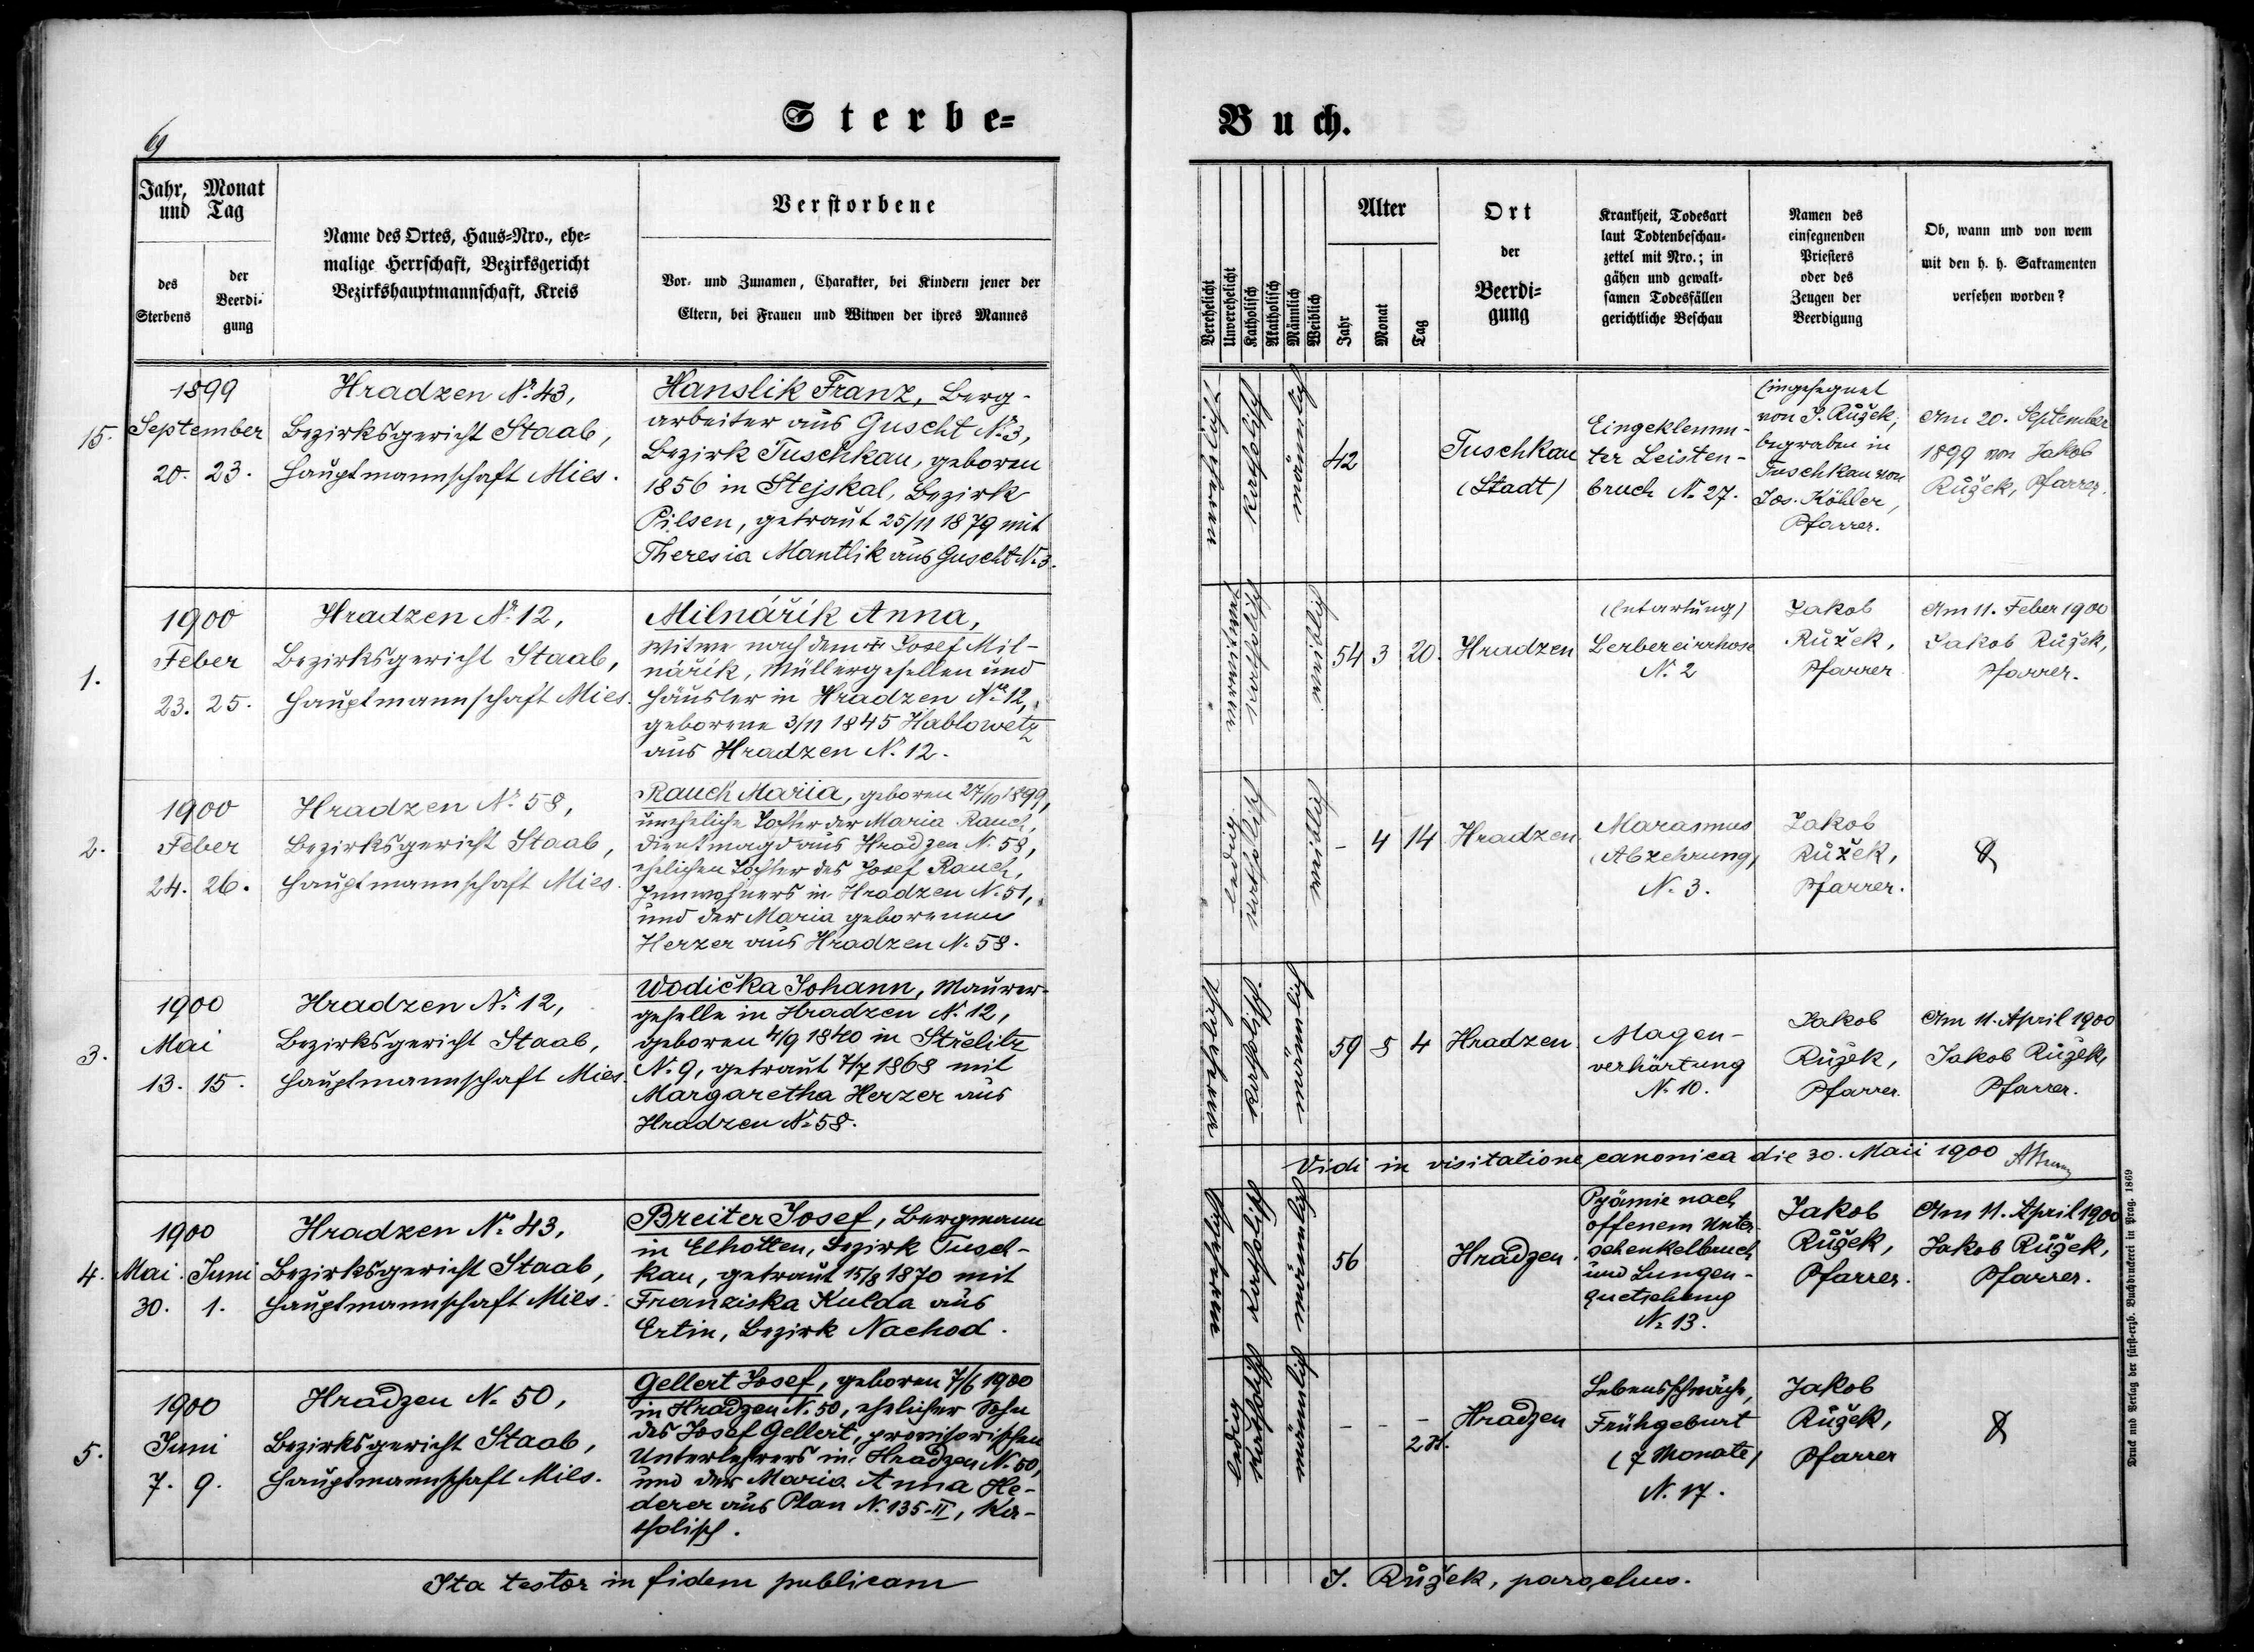 Sterbe=
Buch.
69
Jahr, Monat
und Tag
des
Sterbens
der
Beerdi-
gung
Name des Ortes, Haus=Nro., ehe=
malige Herrschaft, Bezirksgericht
Bezirkshauptmannschaft, Kreis
Verstorbene
Vor- und Zunamen, Charakter, bei Kindern jener der
Eltern, bei Frauen und Witwen der ihres Mannes
Verehelicht
Unverehelicht
Katholisch
Akatholisch
Männlich
Weiblich
Alter
Jahr
Monat
Tag
Ort
der
Beerdi=
gung
Krankheit, Todesart
laut Todtenbeschau-
zettel mit Nro.; in
gähen und gewalt-
samen Todesfällen
gerichtliche Beschau
Namen des
einsegnenden
Priesters
oder des
Zeugen der
Beerdigung
Ob, wann und von wem
mit den h. h. Sakramenten
versehen worden?
15.
1899
September
20. 23.
Hradzen N. 43,
Bezirksgericht Staab,
Hauptmannschaft Mies.
Hanslik Franz, Berg-
arbeiter aus Guscht N. 3,
Bezirk Tuschkau, geboren
1856 in Stejskal, Bezirk
Pilsen, getraut 25/11 1879 mit
Theresia Mantlik aus Guscht N. 3.
katholisch
männlich
42
Tuschkau
(Stadt)
Eingeklemm-
ter Leisten-
bruch N. 27.
Eingesegnet
von J. Růžek,
begraben in
Tuschkau von
Jos. Köhler,
Pfarrer.
Am 20. September
1899 von Jakob
Růžek, Pfarrer.
1.
1900
Feber
23. 25.
Hradzen N. 12,
Bezirksgericht Staab,
Hauptmannschaft Mies.
Milnářík Anna,
Witwe nach dem Josef Mil-
nářík, Müllergesellen und
Häusler in Hradzen N. 12,
geborene 3/11 1845 Hablowetz
aus Hradzen N. 12.
verwitwet
katholisch
weiblich
54 3 20.
Hradzen
(Entartung)
Lerbereirrhose
N. 2
Jakob
Růžek,
Pfarrer
Am 11. Feber 1900
Jakob Růžek,
Pfarrer.
2.
1900
Feber
24. 26.
Hradzen N. 58,
Bezirksgericht Staab,
Hauptmannschaft Mies.
Rauch Maria, geboren 27/10 1899,
uneheliche Tochter der Maria Rauch,
Dienstmagd aus Hradzen N. 58,
ehelichen Tochter des Josef Rauch,
Innwohners in Hradzen N. 51,
und der Maria geborenen
Herzer aus Hradzen N. 58.
ledig
katholisch
weiblich
- 4 14
Hradzen
Marasmus
(Abzehrung)
N. 3.
Jakob
Růžek,
Pfarrer.
3.
1900
Mai
13. 15.
Hradzen N. 12,
Bezirksgericht Staab,
Hauptmannschaft Mies.
Wodička Johann, Maurer-
geselle in Hradzen N. 12,
geboren 4/9 1840 in Střelitz
N. 9, getraut 7/7 1868 mit
Margaretha Herzer aus
Hradzen N. 58.
verehelicht
katholisch
männlich
59 8 4
Hradzen
Magen-
verhärtung
N. 10.
Jakob
Růžek,
Pfarrer.
Am 11. April 1900
Jakob Růžek,
Pfarrer.
Vidi in visitatione canonica die 30. Maii 1900
4.
1900
Mai Juni
30. 1.
Hradzen N. 43,
Bezirksgericht Staab,
Hauptmannschaft Mies.
Breiter Josef, Bergmann
in Elhotten, Bezirk Tusch-
kau, getraut 15/8 1870 mit
Franziska Kulda aus
Ertin, Bezirk Nachod.
verehelicht
katholisch
männlich
56
Hradzen.
Pyämie nach
offenem Unter-
schenkelbruch
und Lungen-
quetschung
N. 13.
Jakob
Růžek,
Pfarrer.
Am 11. April 1900
Jakob Růžek,
Pfarrer.
5.
1900
Juni
7. 9.
Hradzen N. 50,
Bezirksgericht Staab,
Hauptmannschaft Mies.
Gellert Josef, geboren 7/6 1900
in Hradzen N. 50, ehelicher Sohn
des Josef Gellert, provisorischen
Unterlehrers in Hradzen N. 50,
und der Maria Anna He-
derer aus Plan N. 135-II, ka-
tholisch.
ledig
katholisch
männlich
- - -
2 St.
Hradzen
Lebensschwäche,
Frühgeburt
(7 Monate)
N. 17.
Jakob
Růžek,
Pfarrer
Ita testor in fidem publicam
J. Růžek, parochus.
Druck und Verlag der fürst-erzb. Buchdruckerei in Prag. 1869